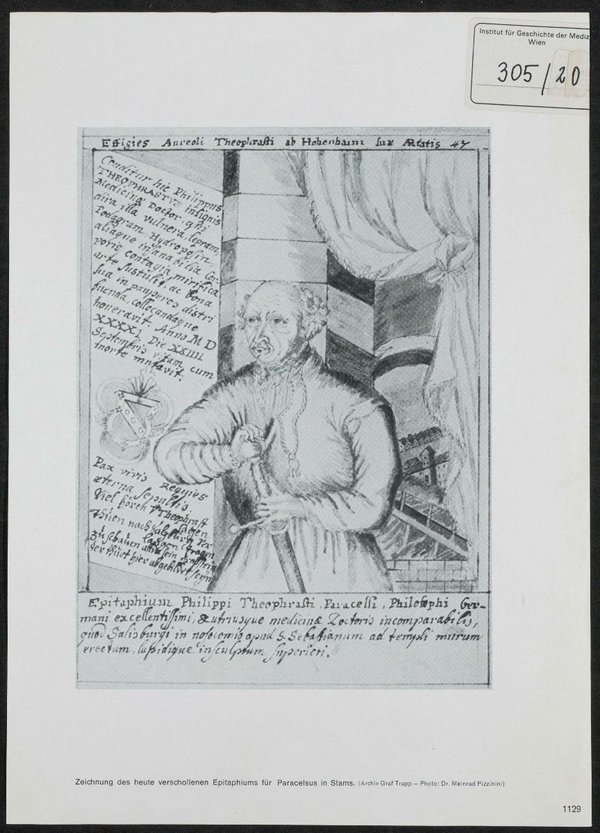 Institut für Geschichte der Mediz
Wien
305/20
Effigies Aureoli Theophrasti ab Hohenhaim suæ Ætatis 47
Conditur hic Philippus
THEOPHRASTVS insignis
Medicinæ Doctor, qui
dira illa vulnera, lepram,
Podagram, Hydropisin
aliaque insanabilia Cor
poris contagia mirifica
arte sustulit, ac bona
sua in pauperes distri
buenda, collocandaque
honeravit. Anno M D
XXXXI. Die XXIIII
Septembris vitam cum
morte mutavit.
Pax vivis Requies
æterna sepultis
Viel
nach Salzburg
Zuschauen
hier
Epitaphium Philippi Theophrasti Paracelsi, Philosophi Ger-
mani excellentissimi, & utriusque medicinæ Doctoris incomparabilis,
quod Salisburgi in nosocomio apud S. Sebastianum ad templi murum
erectum, lapidique insculptum
Zeichnung des heute verschollenen Epitaphiums für Paracelsus in Stams. (Archiv Graf Trapp — Photo: Dr. Meinrad Pizzinini)
1129